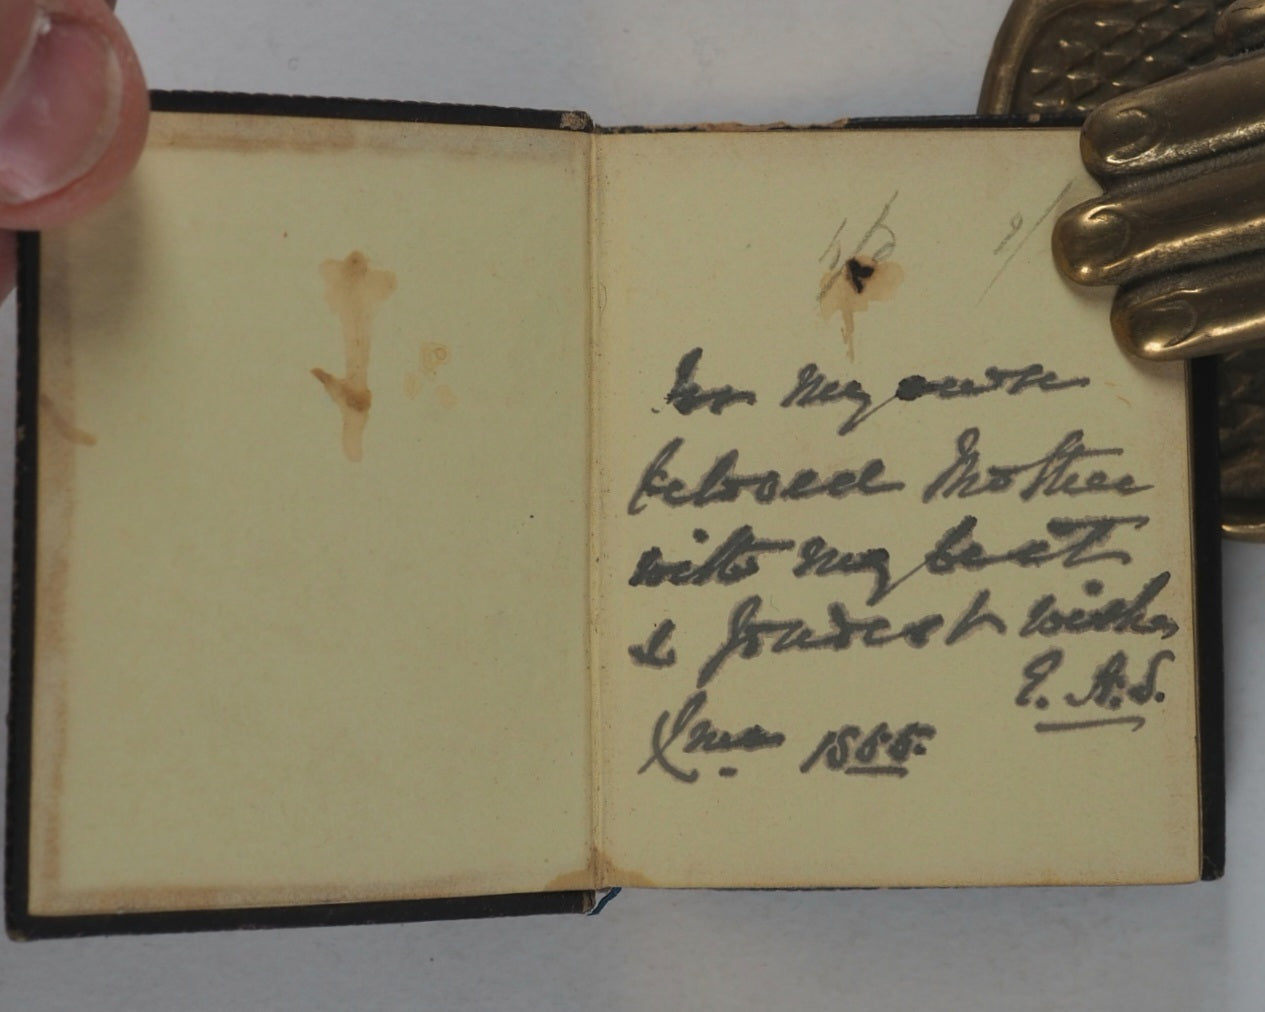 For My own
beloved Mother
with my best
& fondest wishes
E. A. S.
Xmas 1888.